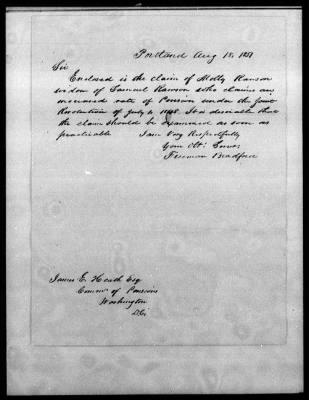 Portland Aug 18, 1851
Sir
Enclosed is the claim of Molly Ranson
widow of Samuel Ranson who claims an
increased rate of Pension under the Joint
Resolution of July 1, 1848. It is desirable that
the claim should be examined as soon as
practicable I am Very Respectfully
Your Obt Servt
Freeman Bradford
James E. Heath Esq
Commr of Pensions
Washington
D.C.